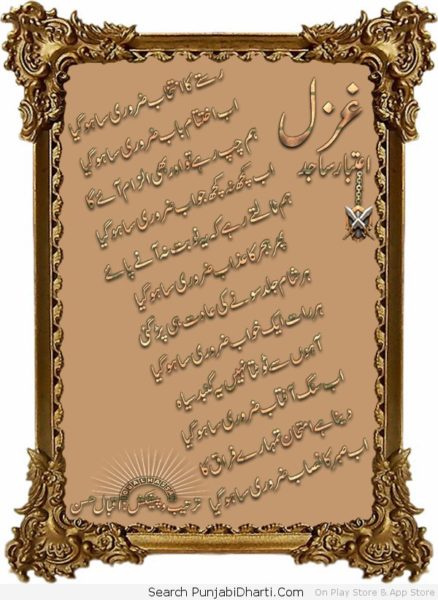 غزل
اعتبار ساجد
رستے کا انتخاب ضروری سا ہو گیا
اب اختتامِ باب ضروری سا ہو گیا
ہم چپ رہے تو اور بھی الزام آئے گا
اب کچھ نہ کچھ جواب ضروری سا ہو گیا
ہم ٹالتے رہے کہ یہ نوبت نہ آنے پائے
پھر ہجر کا عذاب ضروری سا ہو گیا
ہر شام جلد سونے کی عادت ہی پڑ گئی
ہر رات ایک خواب ضروری سا ہو گیا
آہوں سے ٹوٹتا نہیں یہ گنبد سیاہ
اب سنگ آفتاب ضروری سا ہو گیا
دینا ہے امتحان تمہارے فراق کا
اب صبر کا نصاب ضروری سا ہو گیا
ترتیب و پیشکش ڈاکٹر اقبال حسن
Search PunjabiDharti.Com
On Play Store & App Store